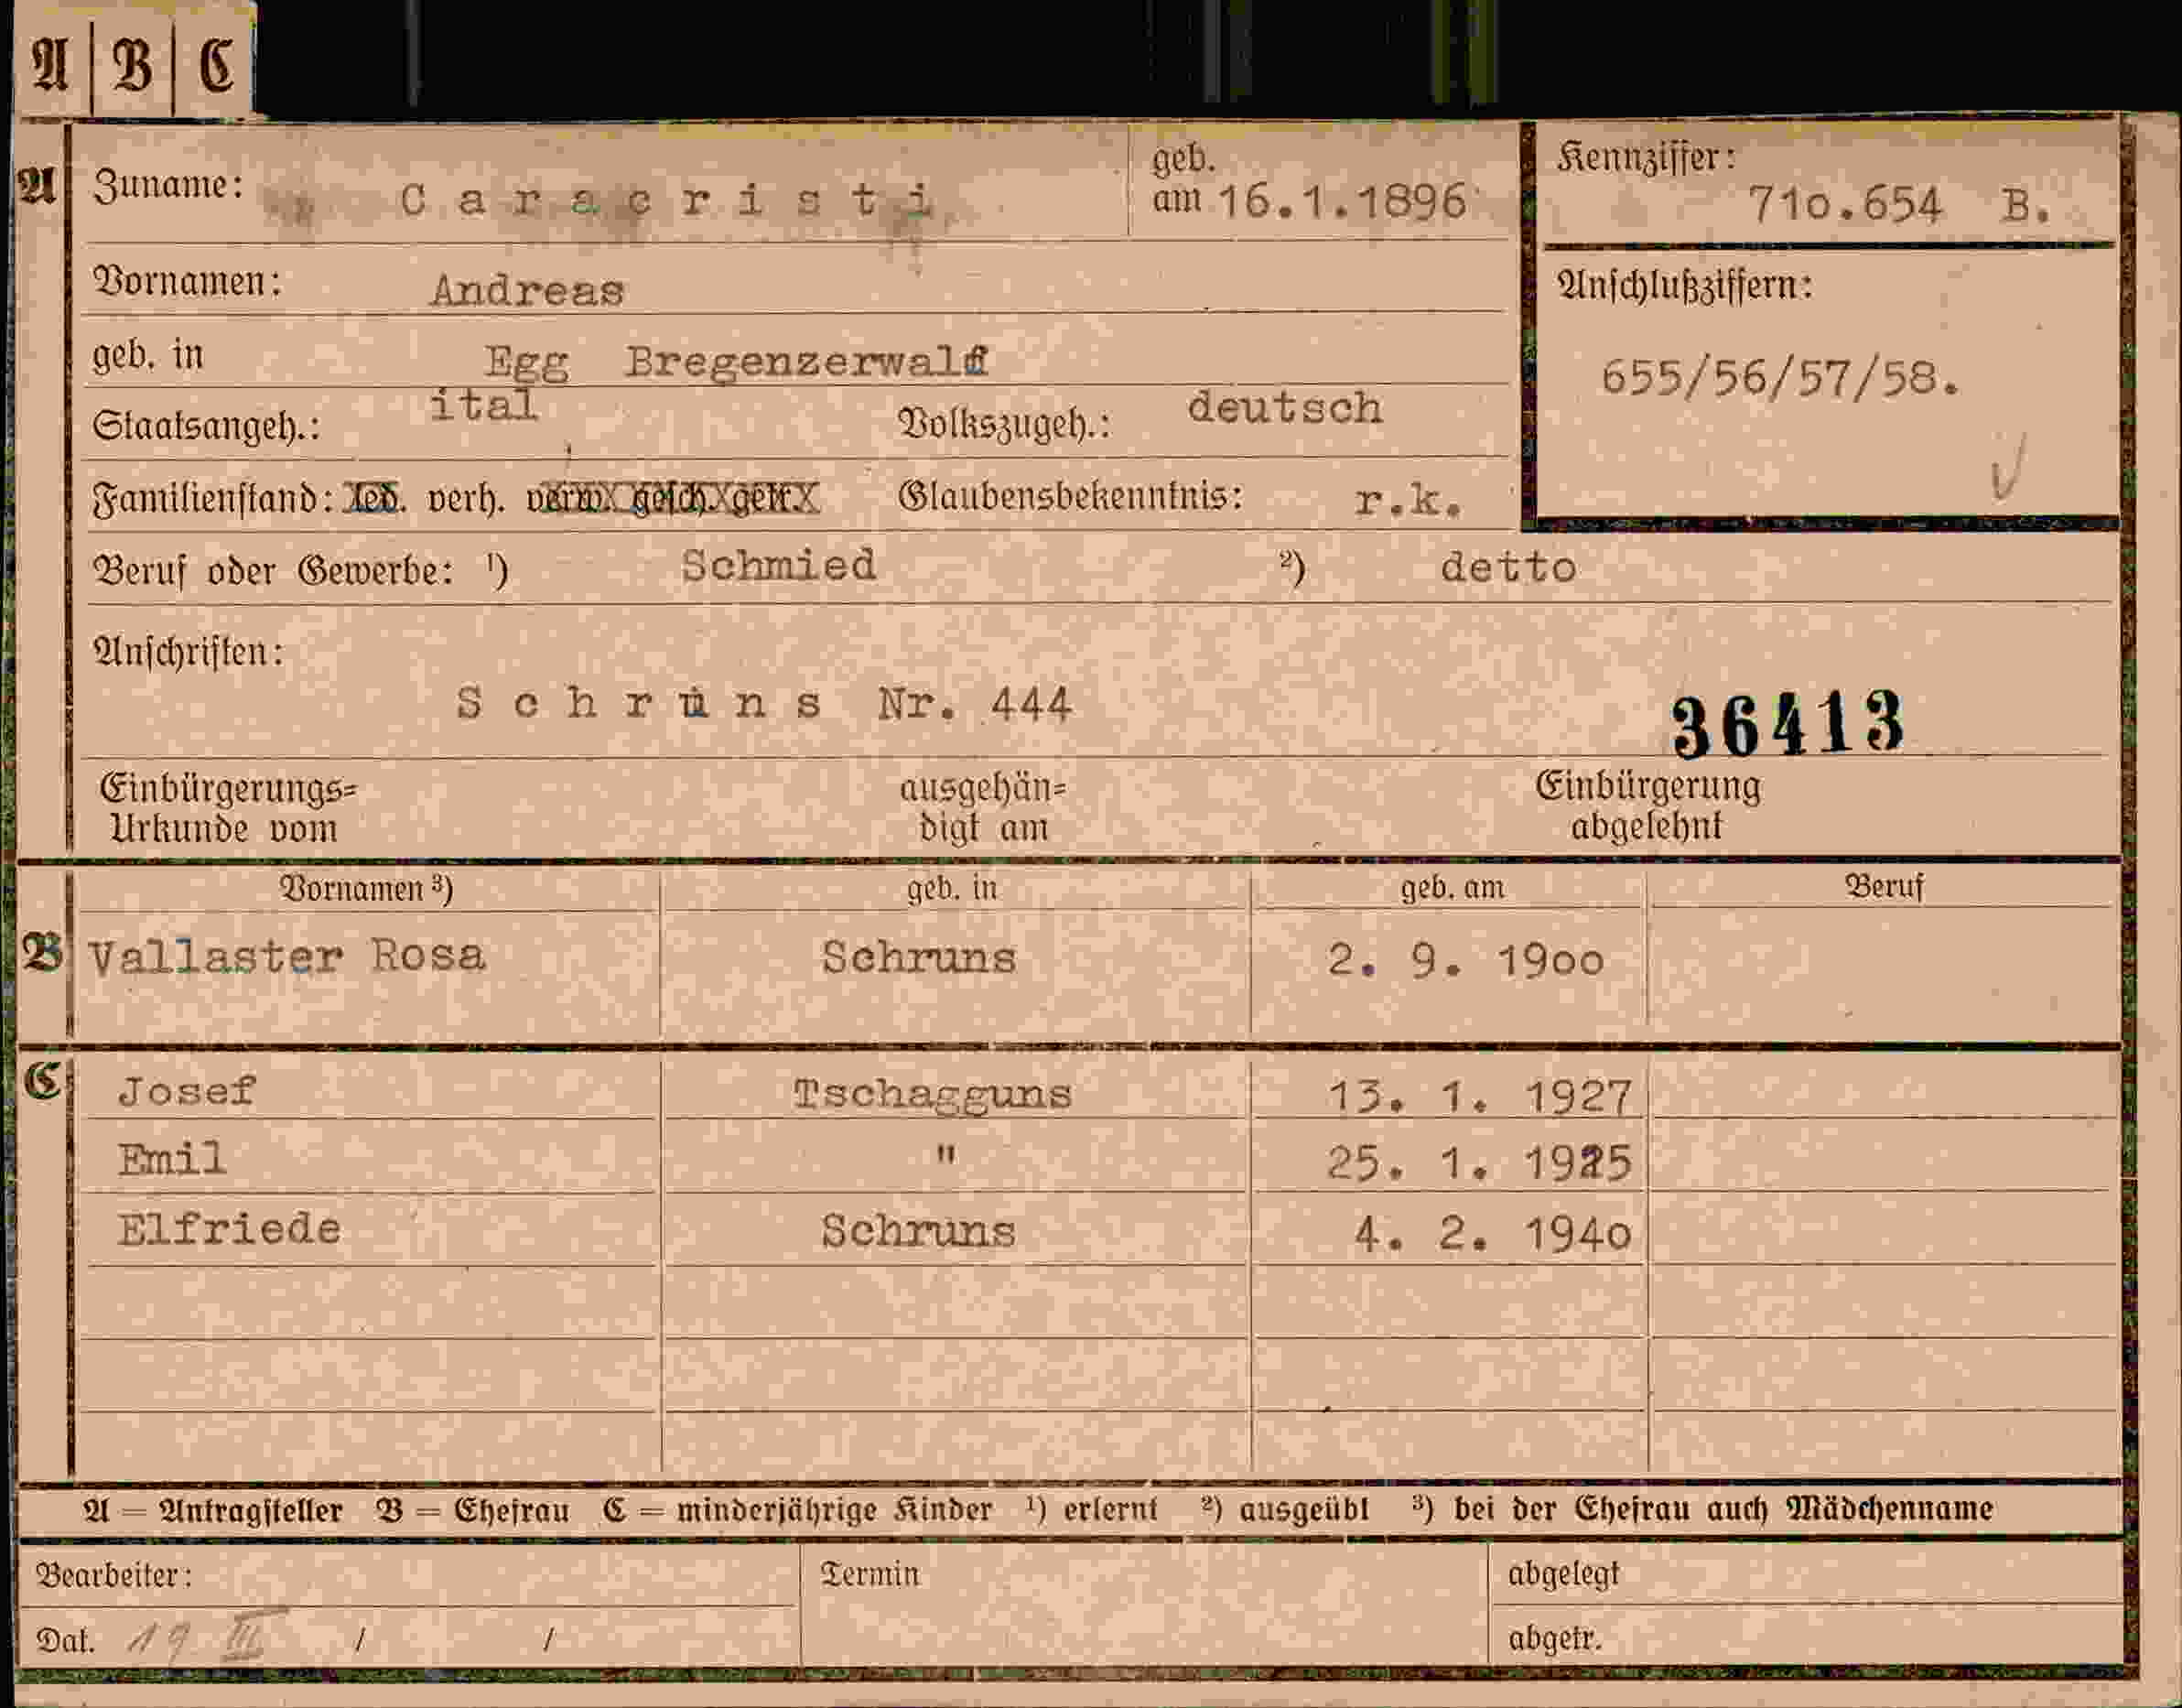 A | B | C
A Zuname: Caracristi geb. am 16.1.1896 Kennziffer: 710.654 B.
Vornamen: Andreas Anschlußziffern:
geb. in Egg Bregenzerwald 655/56/57/58.
Staatsangeh.: ital Volkszugeh.: deutsch
Familienstand: led. verh. verw. gesch. getr. Glaubensbekenntnis: r.k.
Beruf oder Gewerbe: ¹) Schmied ²) detto
Anschriften:
Schruns Nr. 444 36413
Einbürgerungs= ausgehän= Einbürgerung
Urkunde vom digt am abgelehnt
Vornamen ³) geb. in geb. am Beruf
B Vallaster Rosa Schruns 2. 9. 1900
C Josef Tschagguns 13. 1. 1927
Emil " 25. 1. 1925
Elfriede Schruns 4. 2. 1940
A = Antragsteller B = Ehefrau C = minderjährige Kinder ¹) erlernt ²) ausgeübt ³) bei der Ehefrau auch Mädchenname
Bearbeiter: Termin abgelegt
Dat. 19 III / / abgetr.